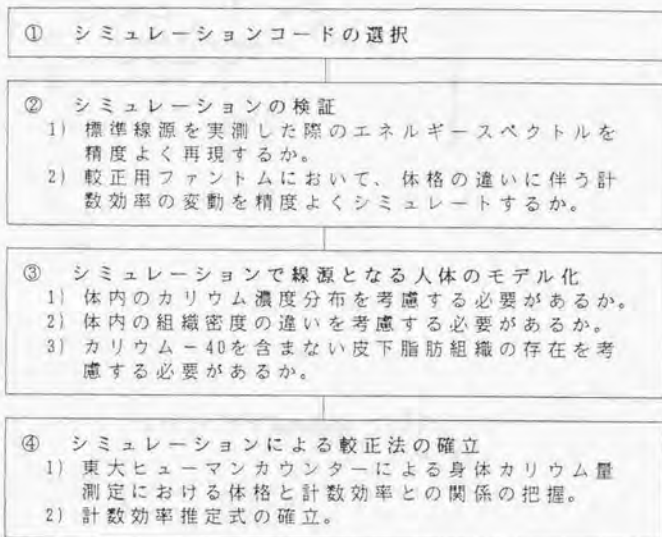 ① シミュレーションコードの選択
② シミュレーションの検証
1) 標準線源を実測した際のエネルギースペクトルを
精度よく再現するか。
2) 較正用ファントムにおいて、体格の違いに伴う計
数効率の変動を精度よくシミュレートするか。
③ シミュレーションで線源となる人体のモデル化
1) 体内のカリウム濃度分布を考慮する必要があるか。
2) 体内の組織密度の違いを考慮する必要があるか。
3) カリウム－40を含まない皮下脂肪組織の存在を考
慮する必要があるか。
④ シミュレーションによる較正法の確立
1) 東大ヒューマンカウンターによる身体カリウム量
測定における体格と計数効率との関係の把握。
2) 計数効率推定式の確立。